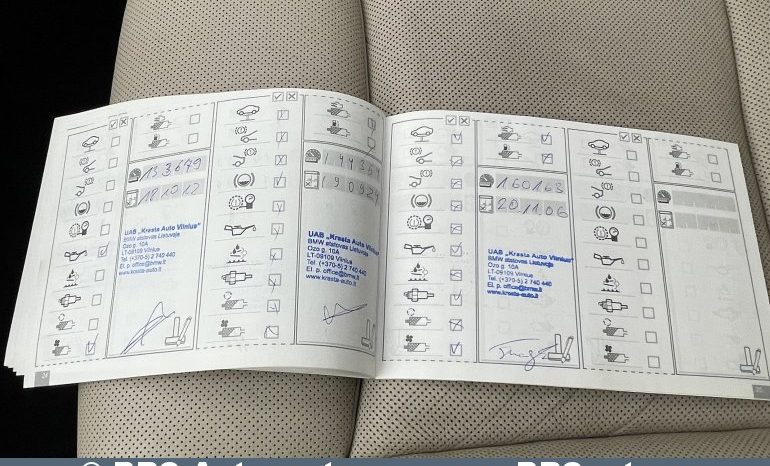 133679
181012
UAB „Krasta Auto Vilnius"
BMW atstovas Lietuvoje
Ozo g. 10A
LT-09109 Vilnius
Tel. (+370-5) 2 740 440
El. p. office@bmw.lt
www.krasta-auto.lt
144364
190924
UAB „Krasta Auto Vilnius"
BMW atstovas Lietuvoje
Ozo g. 10A
LT-09109 Vilnius
Tel. (+370-5) 2 740 440
El. p. office@bmw.lt
www.krasta-auto.lt
160163
201106
UAB „Krasta Auto Vilnius"
BMW atstovas Lietuvoje
Ozo g. 10A
LT-09109 Vilnius
Tel. (+370-5) 2 740 440
El. p. office@bmw.lt
www.krasta-auto.lt